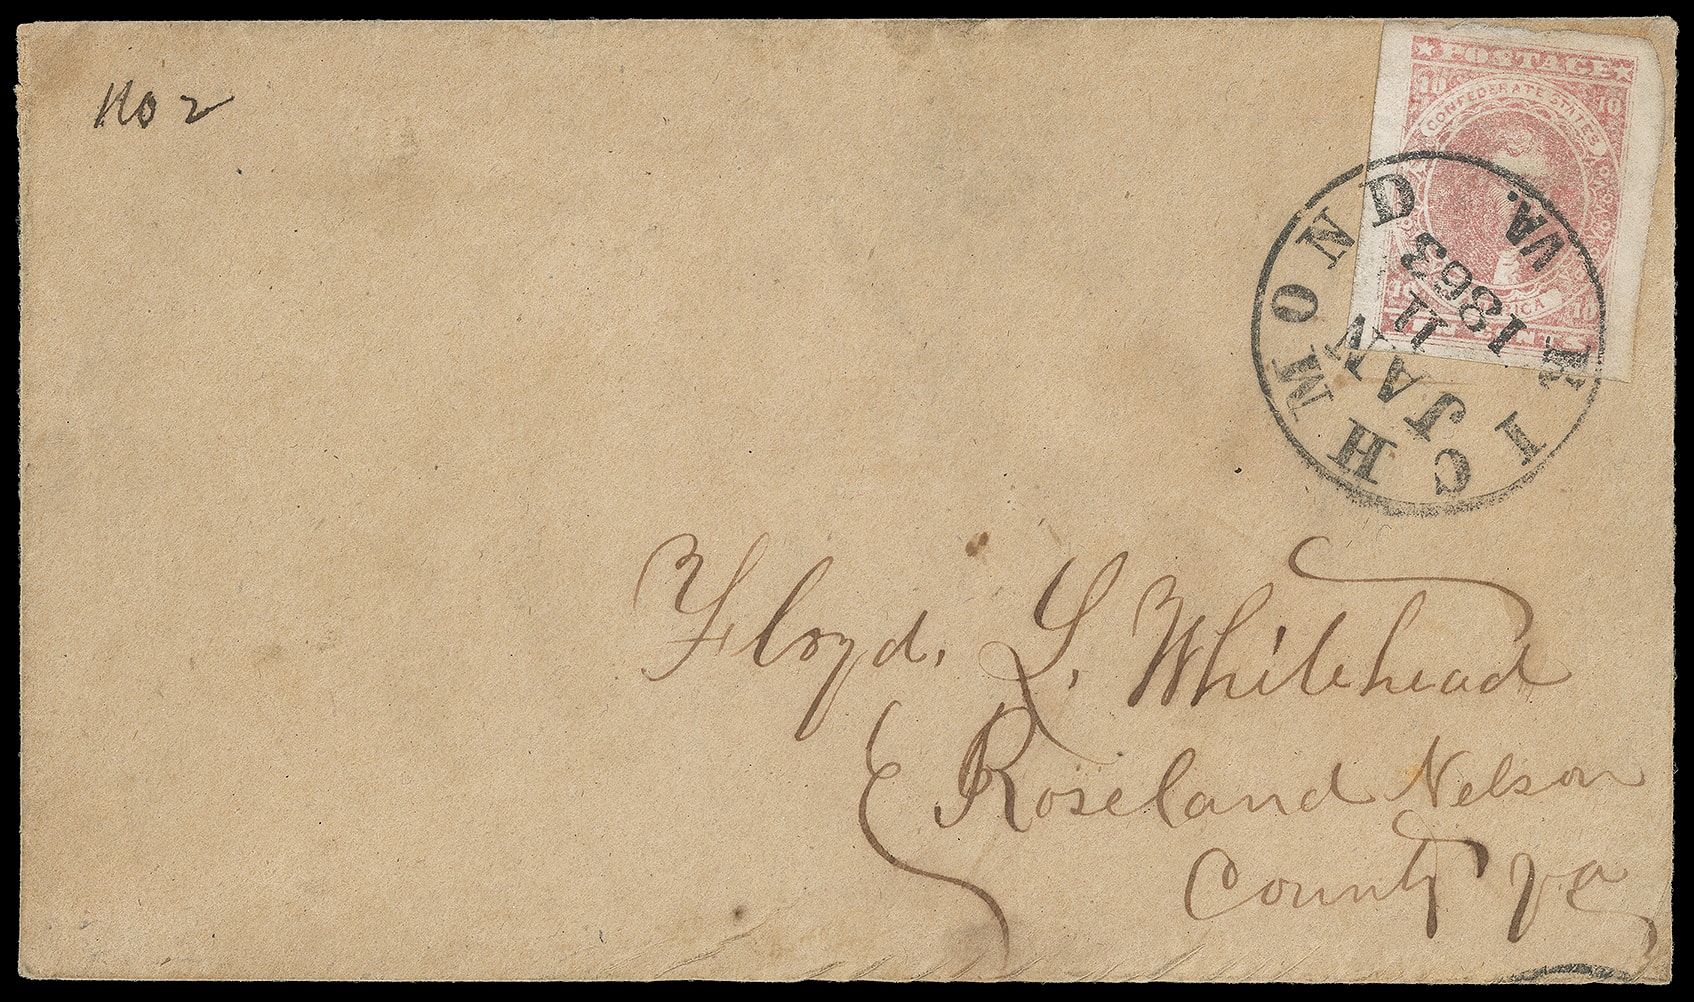 No 2
★ POSTAGE ★
10 10
CONFEDERATE STATES
10 10
TEN CENTS
RICHMOND VA.
JAN
11
1863
Floyd. L. Whitehead
Roseland Nelson
County Va